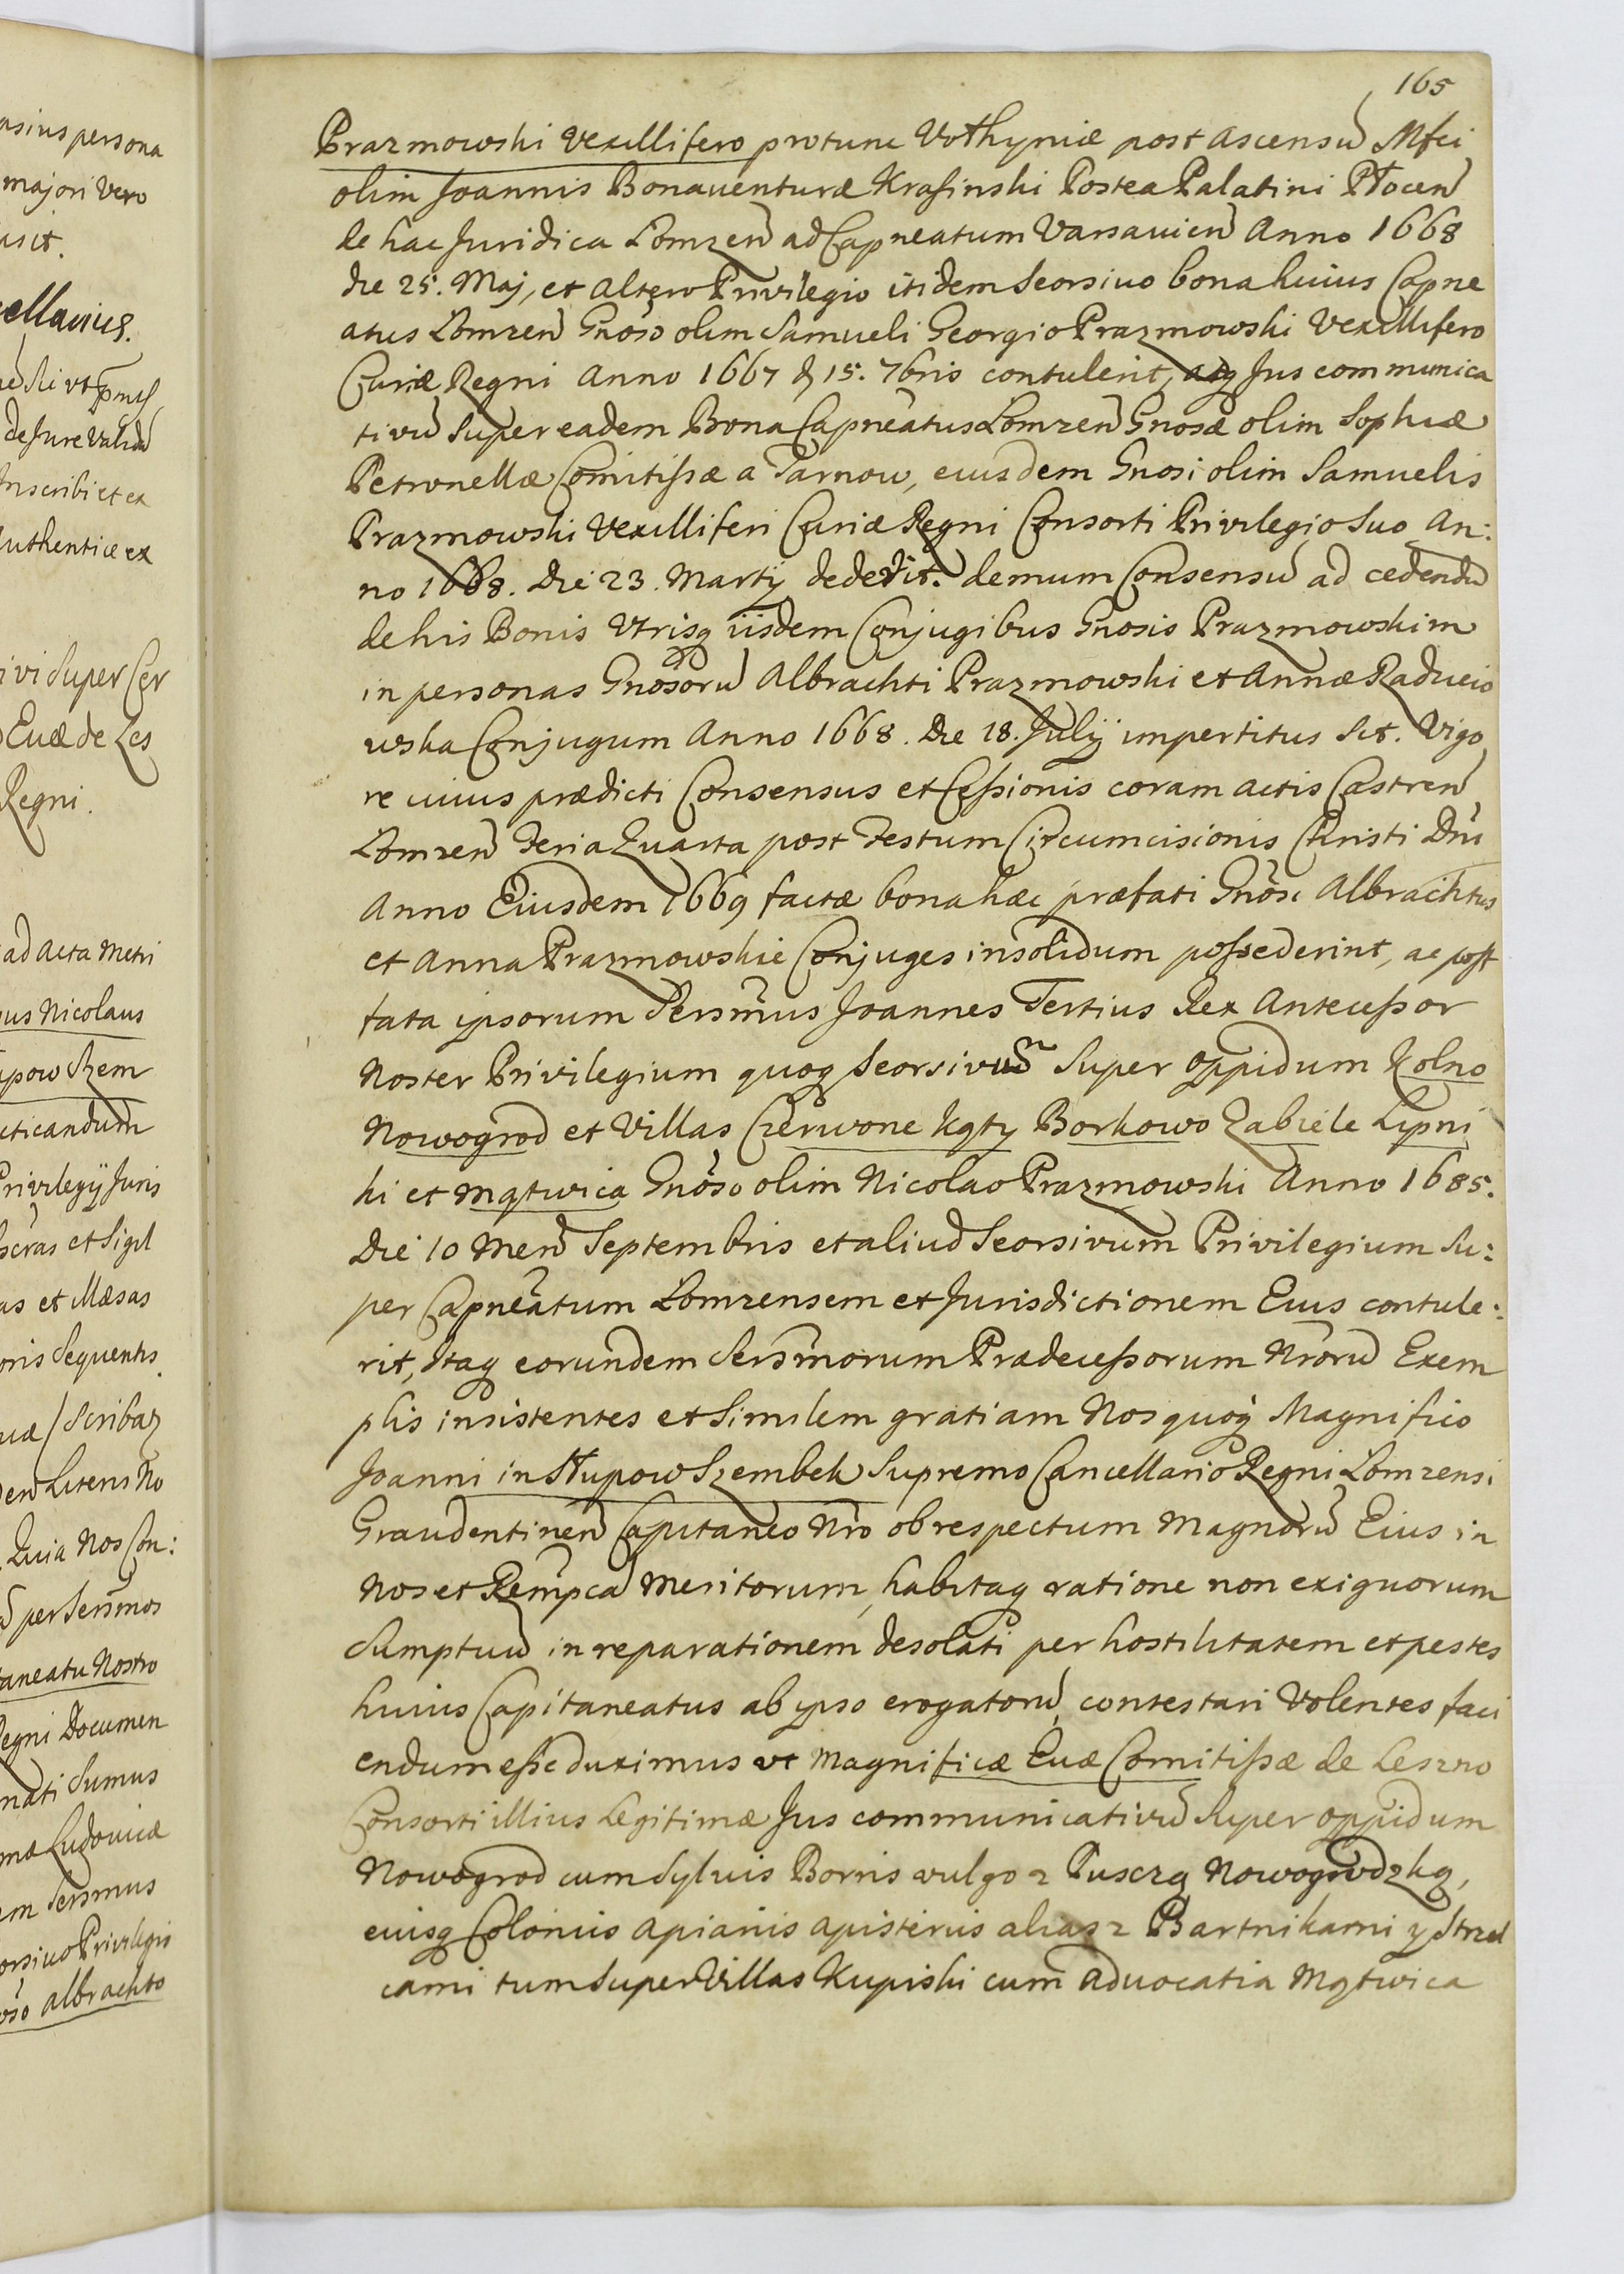 165
Prazmowski Vexillifero protunc Vołhyniæ post ascensũ Mfci
olim Joannis Bonauenturæ Krasinski Postea Palatini Płocen̄
de hac Juridica Łomzen̄ ad Capneatum Varsauien̄ Anno 1668
die 25. Maj, et altero Privilegio itidem Seorsiuo bona huius Capne
atus Łomzen̄ Gnoso olim Samueli Georgio Prazmowski Vexillifero
Curiæ Regni Anno 1667 d 15. 7bris contulerit, atq Jus communica
tivũ super eadem Bona Capneatus Łomzen̄ Gnosæ olim Sophiæ
Petronellæ Comitissæ a Tarnow, eiusdem Gnosi olim Samuelis
Prazmowski Vexilliferi Curiæ Regni Consorti Privilegio Suo An:
no 1668. Die 23. Martij dederit. demum Consensũ ad cedendũ
de his Bonis Utrisq iisdem Conjugibus Gnosis Prazmowskim
in personas Gnosorũ Albrachti Prazmowski et Annæ Raducio
wska Conjugum Anno 1668. Die 18. Julij impertitus sit. Vigo
re cuius prædicti Consensus et Cessionis coram actis Castren̄
Łomzen̄ Feria Quarta post Festum Circumcisionis Christi Dni
Anno Eiusdem 1669 factæ bona hæc præfati Gnosi Albrachtus
et Anna Prazmowskie Conjuges insolidum possederint, ac post
fata ipsorum Sersmus Joannes Tertius Rex Antecessor
Noster Privilegium quoq Seorsivũ Super Oppidum Kolno
Nowogrod et Villas Czerwone Kąty Borkowo Zabiele Lipni
ki et Mątwica Gnoso olim Nicolao Prazmowski Anno 1685.
Die 10 Men̄ Septembris et aliud Seorsivum Privilegium Su:
per Capneatum Łomzensem et Jurisdictionem Eius contule:
rit, Itaq eorundem Sersmorum Prædecessorum Nrorũ Exem
plis insistentes et Similem gratiam Nos quoq Magnifico
Joanni in Słupow Szembek Supremo Cancellario Regni Łomzensi
Graudentinen̄ Capitaneo Nro ob respectum Magnorũ Eius in
Nos et Rempcã Meritorum, habitaq ratione non exiguorum
Sumptuũ in reparationem desolati per hostilitatem et pestes
huius Capitaneatus ab ipso erogatorũ, contestari Volentes faci
endum esse duximus ut Magnificæ Euæ Comitissæ de Leszno
Consorti illius Legitimæ Jus communicativũ Super Oppidum
Nowogrod cum Syluis Borris vulgo z Puszczą Nowogrodzką,
eiusq Coloniis apiariis apisteriis alias z Bartnikami y Strzel
cami tum Super Villas Kupiski cum Aduocatia Mątwica